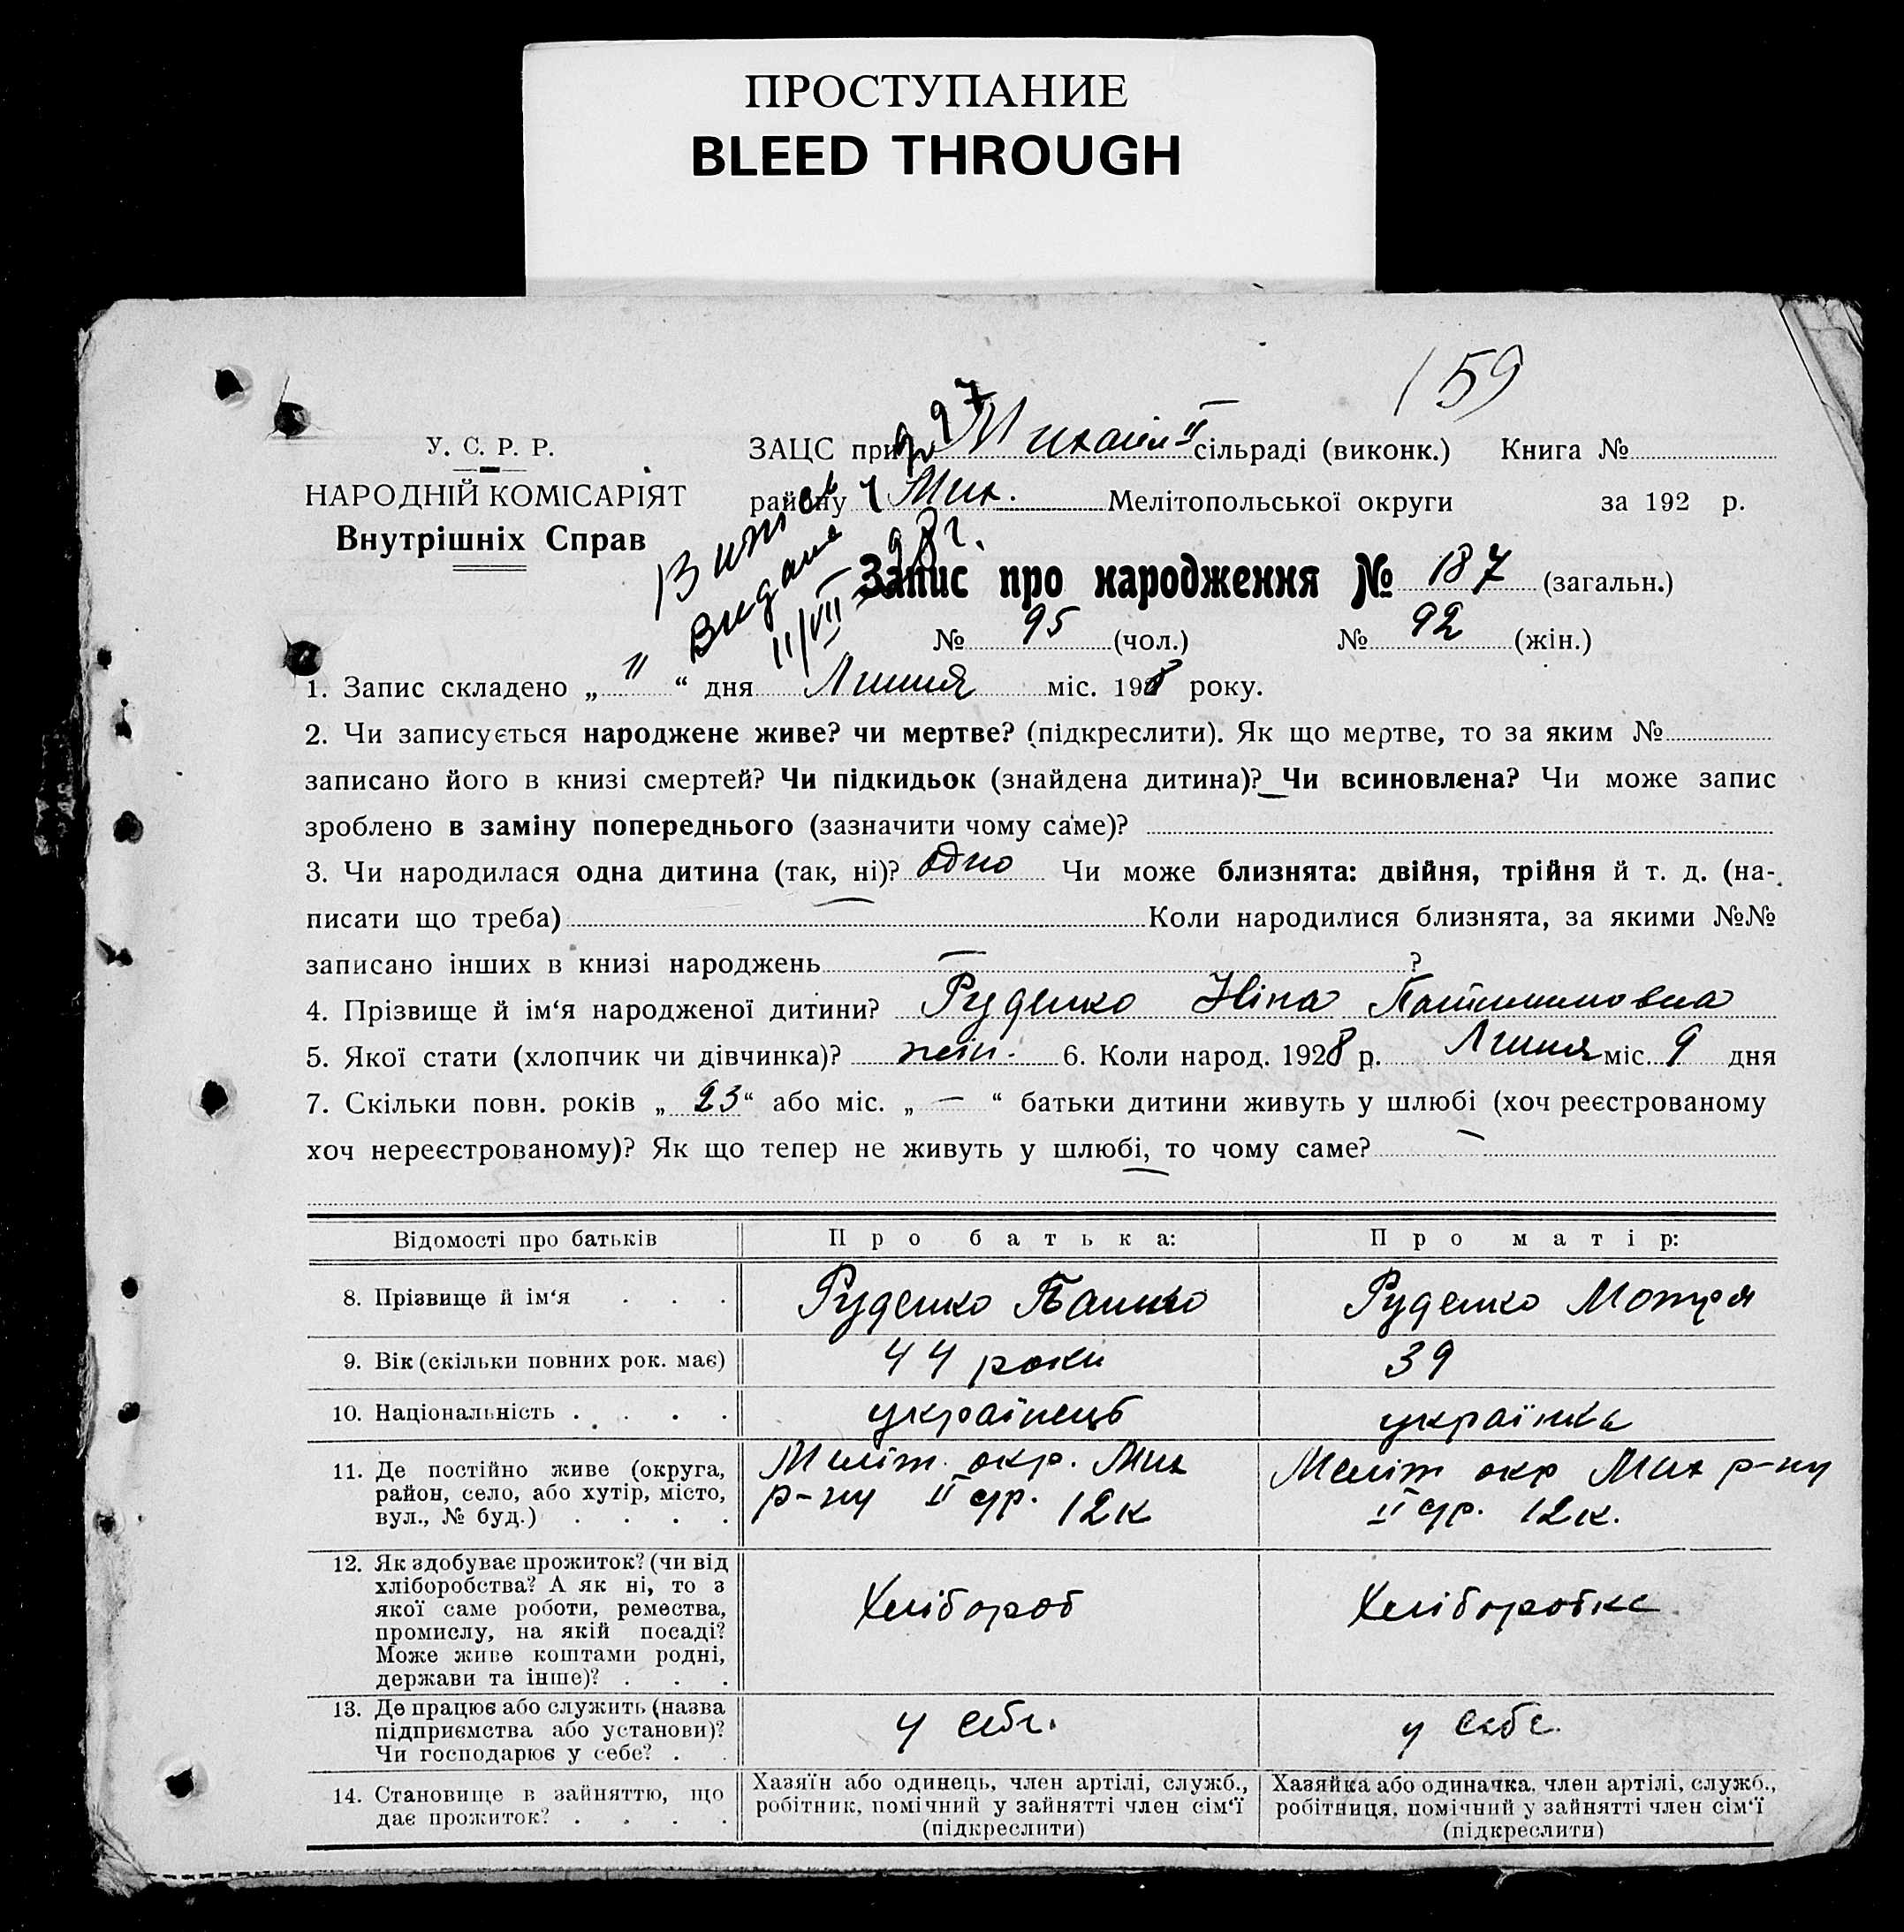 ПРОСТУПАНИЕ
BLEED THROUGH
159
У. С. Р. Р.
НАРОДНІЙ КОМІСАРІЯТ
Внутрішніх Справ
ЗАЦС при Михайл II сільраді (виконк.) Книга №
району Мих. Мелітопольської округи за 192 р.
Видана
11/VII
Запис про народження № 187 (загальн.)
№ 95 (чол.) № 92 (жін.)
1. Запис складено „ 11 “ дня Липня міс. 1928 року.
2. Чи записується народжене живе? чи мертве? (підкреслити). Як що мертве, то за яким №
записано його в книзі смертей? Чи підкидьок (знайдена дитина)? Чи всиновлена? Чи може запис
зроблено в заміну попереднього (зазначити чому саме)?
3. Чи народилася одна дитина (так, ні)? одно Чи може близнята: двійня, трійня й т. д. (на-
писати що треба) Коли народилися близнята, за якими №№
записано інших в книзі народжень — ?
4. Прізвище й ім‘я народженої дитини? Руденко Ніна
5. Якої стати (хлопчик чи дівчинка)? жін. 6. Коли народ. 1928 р. Липня міс. 9 дня
7. Скільки повн. років „ 23 “ або міс. „ — “ батьки дитини живуть у шлюбі (хоч реєстрованому
хоч нереєстрованому)? Як що тепер не живуть у шлюбі, то чому саме? —
Відомості про батьків Про батька: Про матір:
8. Прізвище й ім‘я . . . Руденко Руденко Мотря
9. Вік (скільки повних рок. має) 44 роки 39
10. Національність . . . . українець українка
11. Де постійно живе (округа, район, село, або хутір, місто, вул., № буд.) . . . .
Меліт. окр. Мих
р-ну II ср. 12к
Меліт окр Мих р-ну
II ср. 12к.
12. Як здобуває прожиток? (чи від
хліборобства? А як ні, то з
якої саме роботи, ремества,
промислу, на якій посаді?
Може живе коштами родні,
держави та інше)? . . .
Хлібороб Хліборобка
13. Де працює або служить (назва
підприємства або установи)?
Чи господарює у себе? . .
у себе. у себе.
14. Становище в зайняттю, що
дає прожиток? . . . .
Хазяїн або одинець, член артілі, служб.,
робітник, помічний у зайнятті член сім‘ї
(підкреслити)
Хазяйка або одиначка, член артілі, служб.,
робітниця, помічний у зайнятті член сім‘ї
(підкреслити)